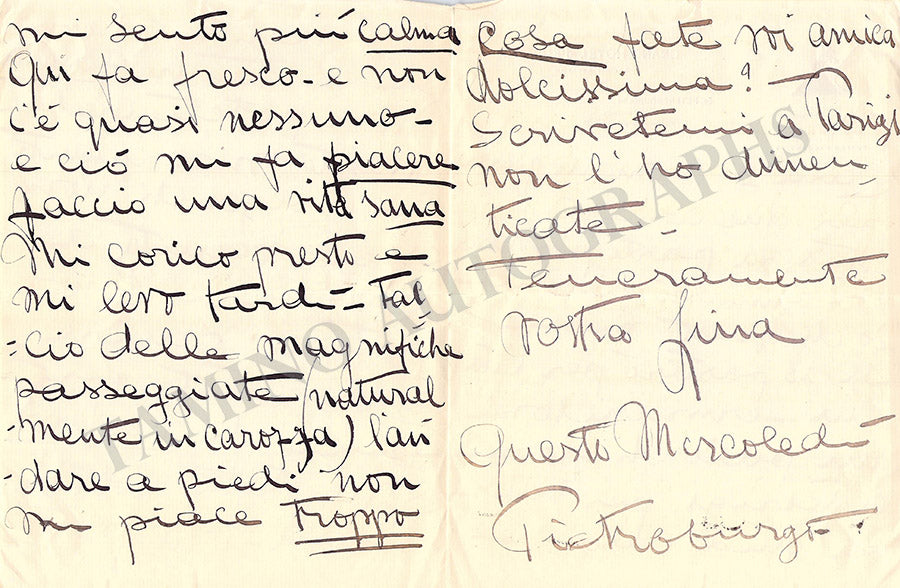 mi sento piú calma
Qui fa fresco - e non
c'é quasi nessuno -
e ció mi fa piacere
faccio una vita sana
Mi corico presto e
mi levo tardi - Fac
-cio delle magnifiche
passeggiate (natural
-mente in carozza) l'an
-dare a piedi non
mi piace troppo
Cosa fate voi amica
dolcissima? -
Scrivetemi a Parigi
non l'ho dimen
-ticate -
Teneramente
vostra Lina
Questo Mercoledi
Pietroburgo -
TAMINO AUTOGRAPHS